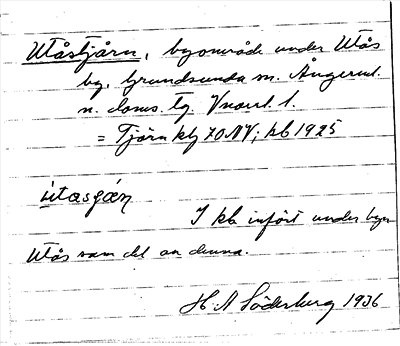 Utåstjärn, byområde under Utås
by, Grundsunda sn. Ångerml.
n. doms. tg. Vnorrl. l.
= Tjärn kbl 70 NV; kb 1925
ùtasjǽɳ
I kb infört under byn
Utås som del av denna.
H. A. Söderberg 1936